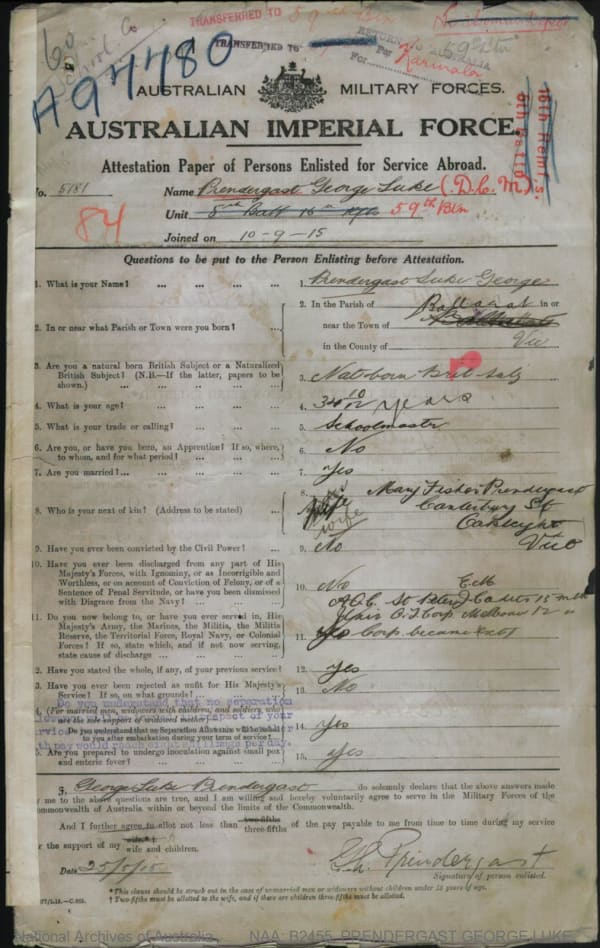 60
School Co
TRANSFERRED TO 59th Btn
TRANSFERRED TO
RETURN TO AUSTRALIA
Per Karmala
For
59 Btn
A94480
16th Reinf.
AUSTRALIAN MILITARY FORCES.
AUSTRALIAN IMPERIAL FORCE.
Attestation Paper of Persons Enlisted for Service Abroad.
No. 5181 Name Prendergast George Luke (D.C.M)
84
Unit 59th Btn
Joined on 10-9-15
Questions to be put to the Person Enlisting before Attestation.
1. What is your Name? ... ... ... ... 1. Prendergast Luke George
2. In or near what Parish or Town were you born? ... 2. In the Parish of Ballarat in or
near the Town of
in the County of Vic
3. Are you a natural born British Subject or a Naturalized
British Subject? (N.B.—If the latter, papers to be
shown.) ... ... ... ... ... 3. Nat born Brit Subj
4. What is your age? ... ... ... ... 4. 34 10/12 years
5. What is your trade or calling? ... ... ... 5. Schoolmaster
6. Are you, or have you been, an Apprentice? If so, where,
to whom, and for what period? ... ... ... 6. No
7. Are you married?... ... ... ... ... 7. Yes
8. Who is your next of kin? (Address to be stated) ... 8. wife Mary Fisher Prendergast
Canterbury St
Vic
9. Have you ever been convicted by the Civil Power? ... 9. No
10. Have you ever been discharged from any part of His
Majesty's Forces, with Ignominy, or as Incorrigible and
Worthless, or on account of Conviction of Felony, or of a
Sentence of Penal Servitude, or have you been dismissed
with Disgrace from the Navy? ... ... ... 10. No
11. Do you now belong to, or have you ever served in, His
Majesty's Army, the Marines, the Militia, the Militia
Reserve, the Territorial Force, Royal Navy, or Colonial
Forces? If so, state which, and if not now, serving,
state cause of discharge ... ... ... 11. Yes Corp. became
St Peters Cadets 15 mth
12. Have you stated the whole, if any, of your previous service? 12. Yes
13. Have you ever been rejected as unfit for His Majesty's
Service? If so, on what grounds? ... ... 13. No
Do you understand that no separation
14. (For married men, widowers with children, and soldiers who
are the sole support of widowed mother)
Do you understand that no Separation Allowance will be issued
to you after embarkation during your term of service? 14. Yes
th pay would reach eight shillings per day.
15. Are you prepared to undergo inoculation against small pox
and enteric fever? ... ... ... 15. yes
I, George Luke Prendergast do solemnly declare that the above answers made
by me to the above questions are true, and I am willing and hereby voluntarily agree to serve in the Military Forces of the
Commonwealth of Australia within or beyond the limits of the Commonwealth.
And I further agree to allot not less than two-fifths three-fifths of the pay payable to me from time to time during my service
for the support of my wife.* wife and children.
Date
G.L. Prendergast
Signature of person enlisted.
*This clause should be struck out in the case of unmarried men or widowers without children under 18 years of age.
† Two-fifths must be allotted to the wife, and if there are children three-fifths must be allotted.
National Archives of Australia NAA: B2455, PRENDERGAST GEORGE LUKE